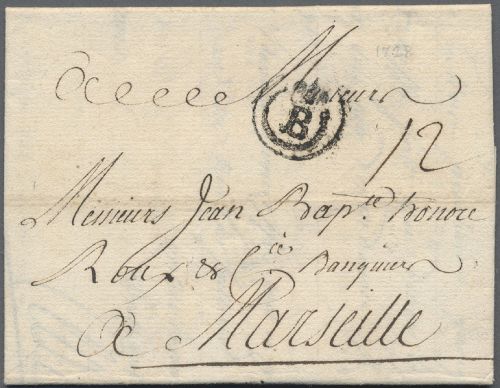 1728
A Messieurs
B
12
Messieurs Jean Bapte. honoré
Roux & Cie Banquiers
A Marseille